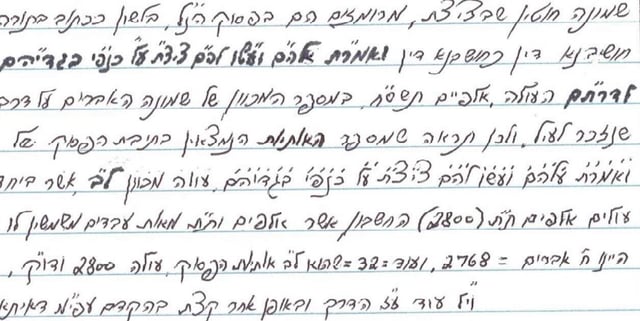 שמונה חוטין שבציצת, מרומזים הם בפסוק הנ״ל, בלשון ככתוב בתורה
חושבנא דין כחושבנא דין ואמרת אלהם ועשו להם ציצת על כנפי בגדיהם
לדרתם העולה, אלפיים תשס״ח, במספר המכוון של שמונה האברים על דרך
שנזכר לעיל, ולכן תראה שמספר האותיות הנמצאין בתיבת הפסוק של
ואמרת עלהם ועשו להם ציצת על כנפי בגדיהם, עולה מכוון ל״ב, אשר ביחד
עולים אלפים ת״ת (2800) החשבון אשר אלפים ות״ת מאות עבדים משמשין לו
היינו ח׳ אברים = 2768, ועוד =32= שהוא ל״ב אותיות הפסוק, עולה 2800 ודו״ק,
וי״ל עוד ע״ז הדרך ובאופן אחר קצת בהקדם עפ״י מ׳ דאיתא